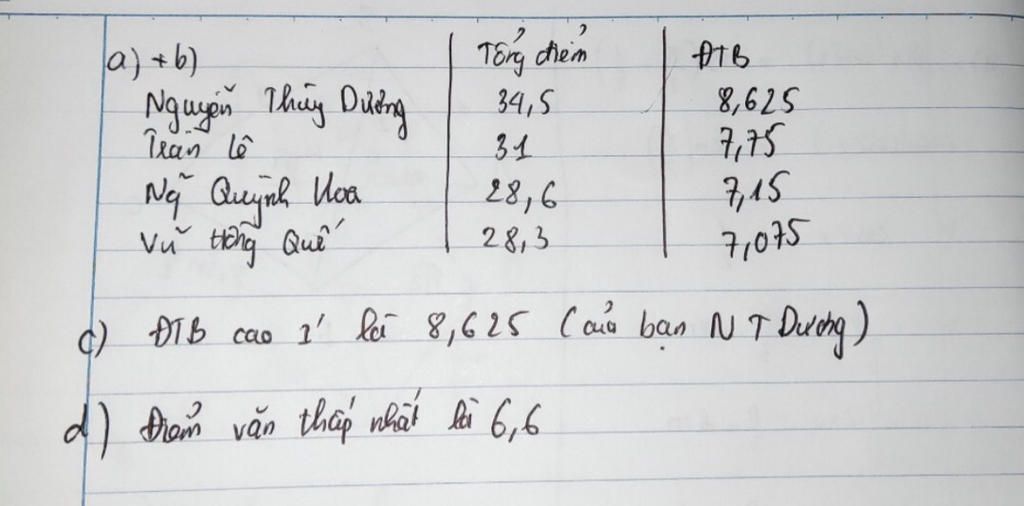 a) + b) Tổng điểm ĐTB
Nguyễn Thùy Dương 34,5 8,625
Trần Lê 31 7,75
Ng̃ Quỳnh Hoa 28,6 7,15
Vũ Hồng Quế 28,3 7,075
c) ĐTB cao 1' là 8,625 (của bạn N T Dương)
d) Điểm văn thấp nhất là 6,6